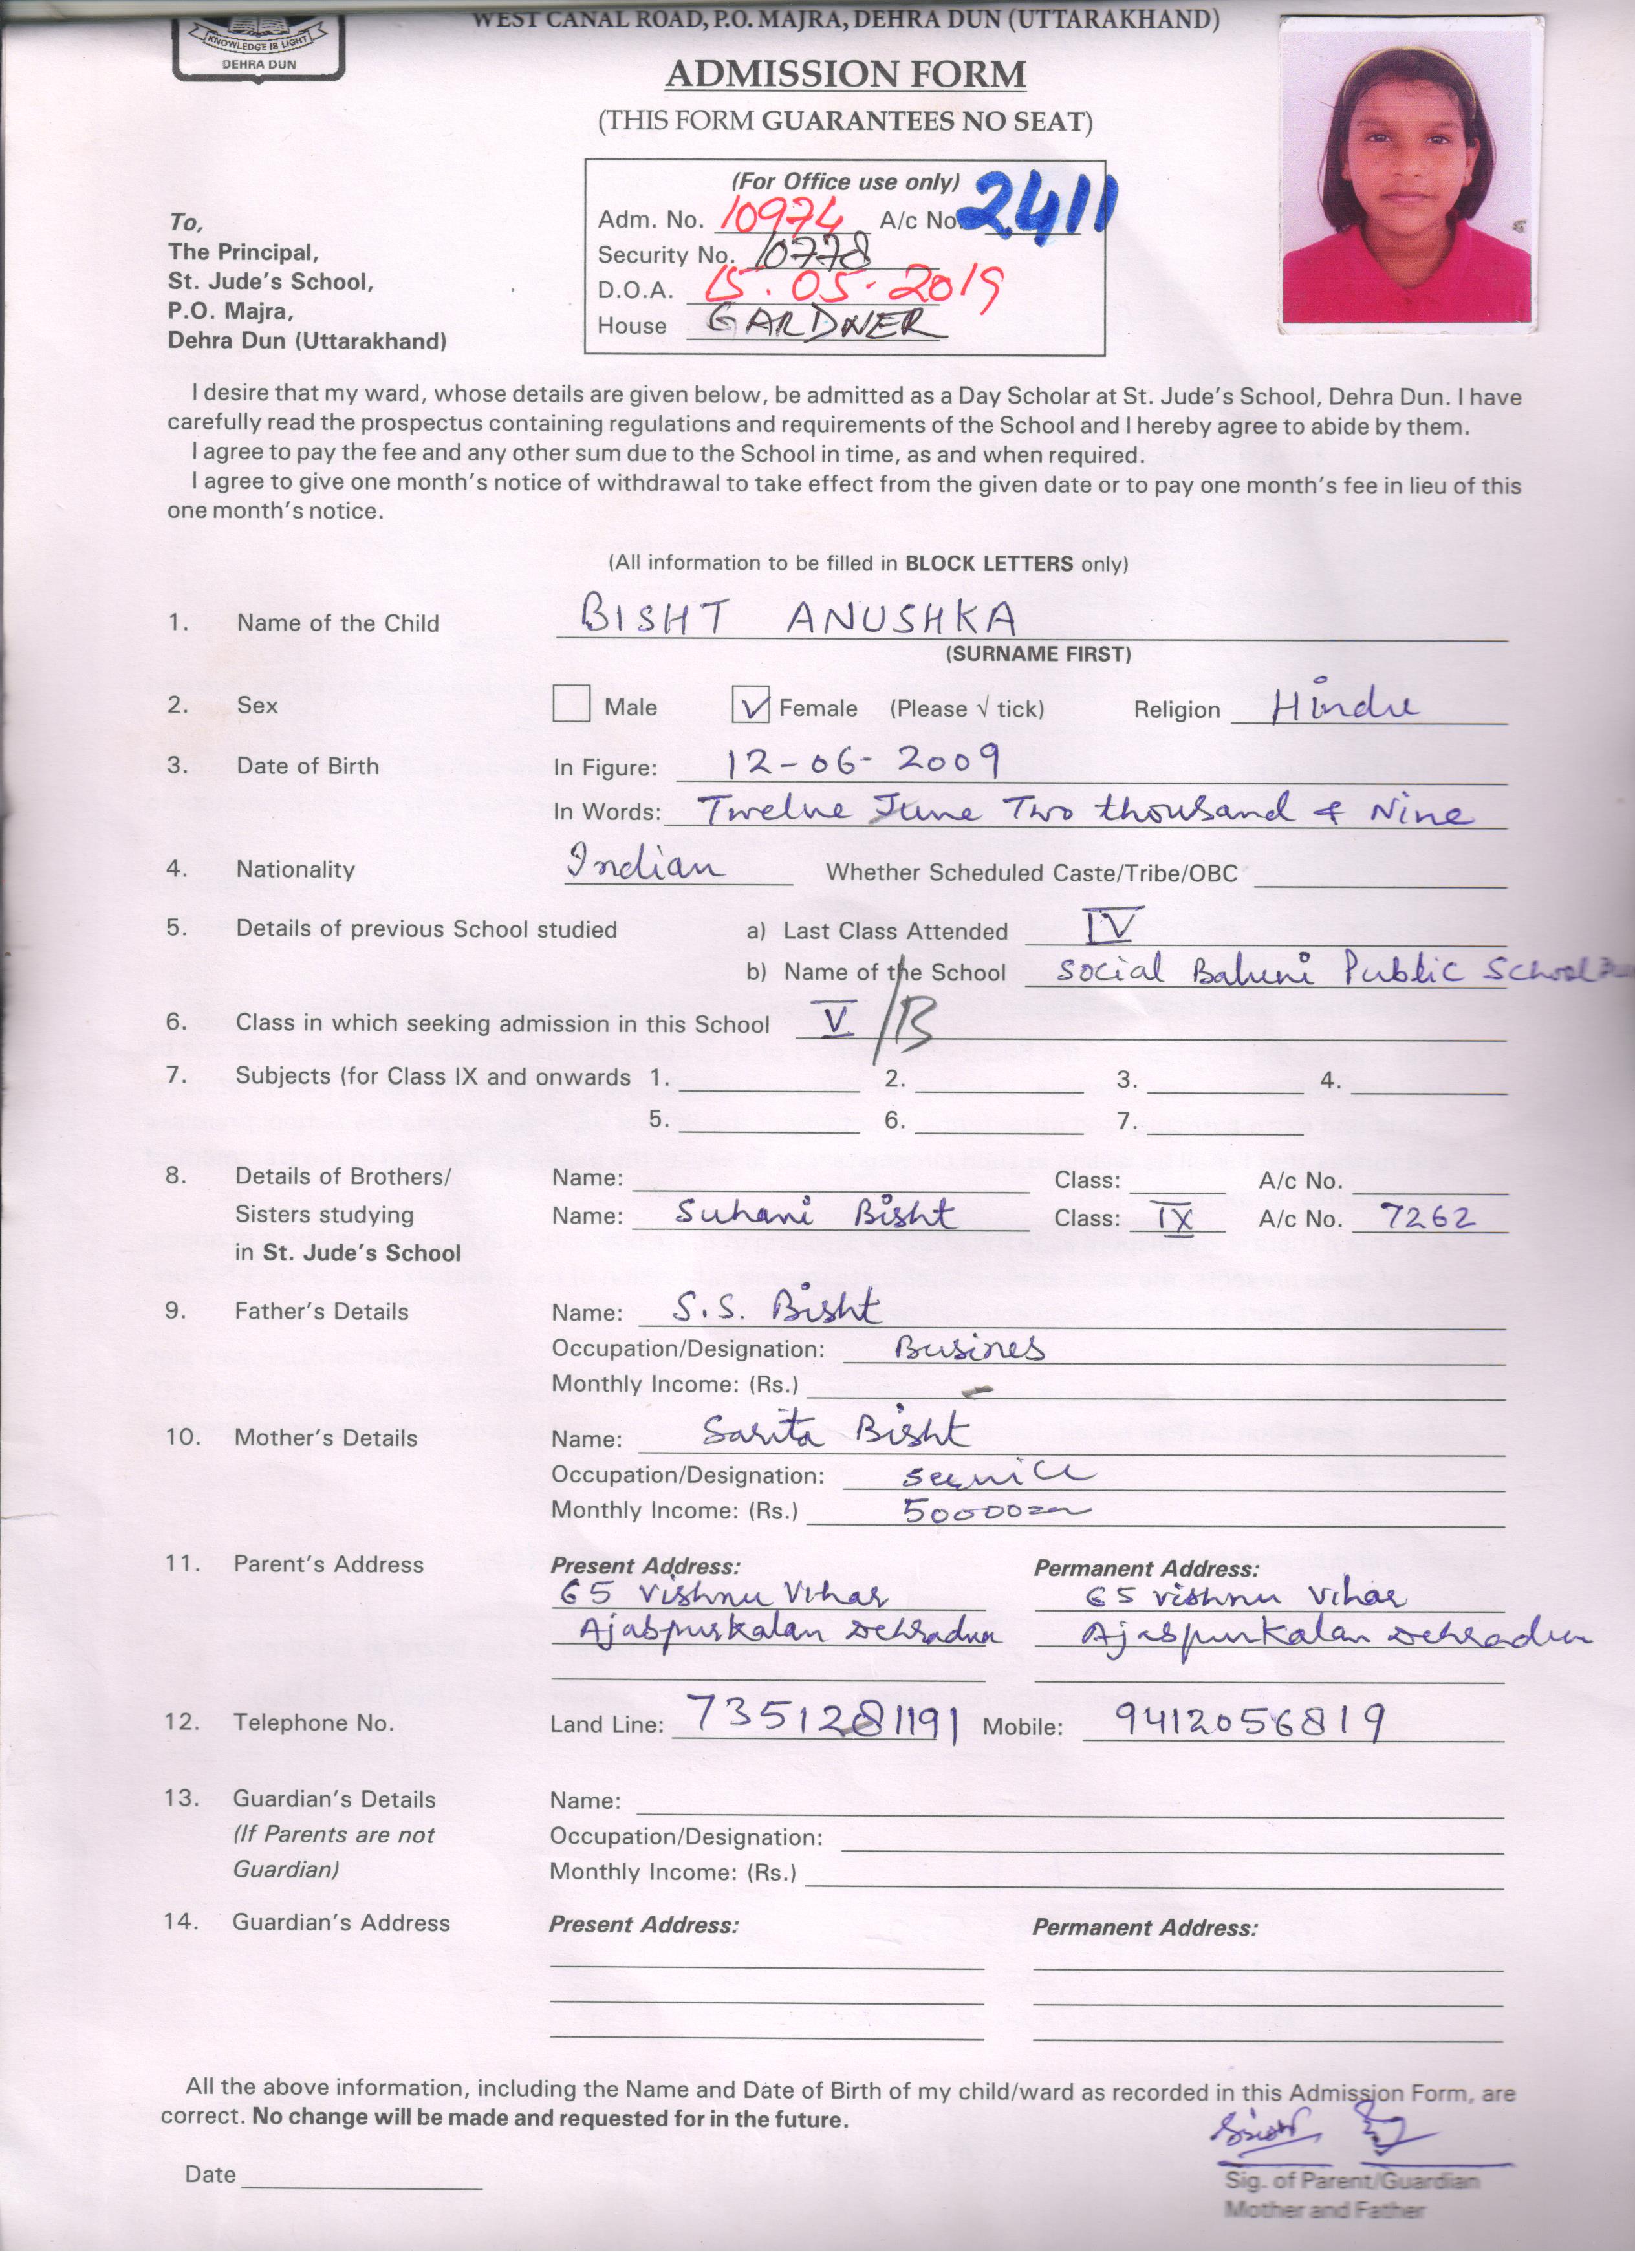 WEST CANAL ROAD, P.O. MAJRA, DEHRA DUN (UTTARAKHAND)
KNOWLEDGE IS LIGHT
DEHRA DUN
ADMISSION FORM
(THIS FORM GUARANTEES NO SEAT)
(For Office use only)
Adm. No. 10974 A/c No. 2411
Security No. 10778
D.O.A. 15.05.2019
House GARDNER
To,
The Principal,
St. Jude's School,
P.O. Majra,
Dehra Dun (Uttarakhand)
I desire that my ward, whose details are given below, be admitted as a Day Scholar at St. Jude's School, Dehra Dun. I have
carefully read the prospectus containing regulations and requirements of the School and I hereby agree to abide by them.
I agree to pay the fee and any other sum due to the School in time, as and when required.
I agree to give one month's notice of withdrawal to take effect from the given date or to pay one month's fee in lieu of this
one month's notice.
(All information to be filled in BLOCK LETTERS only)
1. Name of the Child BISHT ANUSHKA
(SURNAME FIRST)
2. Sex Male √ Female (Please √ tick) Religion Hindu
3. Date of Birth In Figure: 12-06-2009
In Words: Twelve June Two thousand & Nine
4. Nationality Indian Whether Scheduled Caste/Tribe/OBC
5. Details of previous School studied a) Last Class Attended IV
b) Name of the School Social Baluni Public School
6. Class in which seeking admission in this School V /B
7. Subjects (for Class IX and onwards 1. 2. 3. 4.
5. 6. 7.
8. Details of Brothers/ Name: Class: A/c No.
Sisters studying Name: Suhani Bisht Class: IX A/c No. 7262
in St. Jude's School
9. Father's Details Name: S.S. Bisht
Occupation/Designation: Busines
Monthly Income: (Rs.) -
10. Mother's Details Name: Sarita Bisht
Occupation/Designation: Service
Monthly Income: (Rs.) 50000
11. Parent's Address Present Address: Permanent Address:
65 Vishnu Vihar 65 Vishnu Vihar
Ajabpurkalan Dehradun Ajabpurkalan Dehradun
12. Telephone No. Land Line: 7351281191 Mobile: 9412056819
13. Guardian's Details Name:
(If Parents are not Occupation/Designation:
Guardian) Monthly Income: (Rs.)
14. Guardian's Address Present Address: Permanent Address:
All the above information, including the Name and Date of Birth of my child/ward as recorded in this Admission Form, are
correct. No change will be made and requested for in the future.
Date
Sig. of Parent/Guardian
Mother and Father